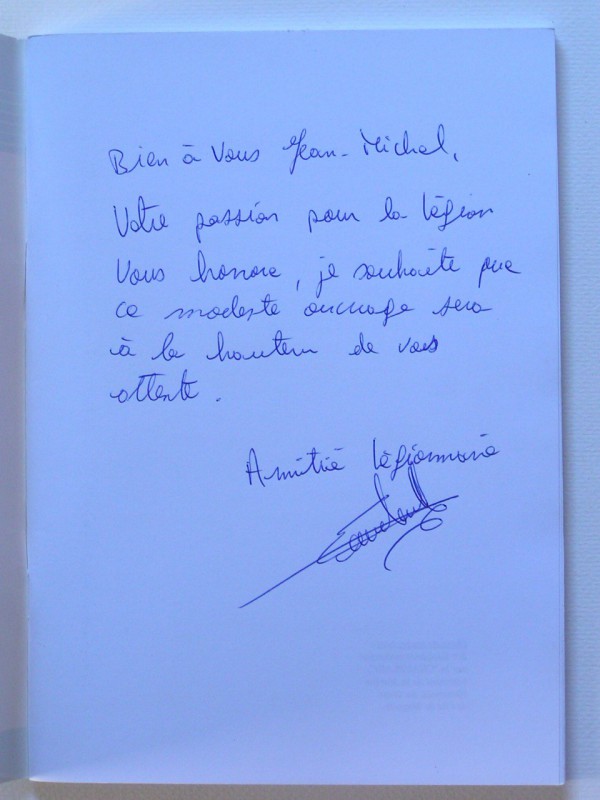 Bien à Vous Jean-Michel,
Votre passion pour la légion
Vous honore, je souhaite que
ce modeste ouvrage sera
à la hauteur de vos
attente.
Amitié légionnaire